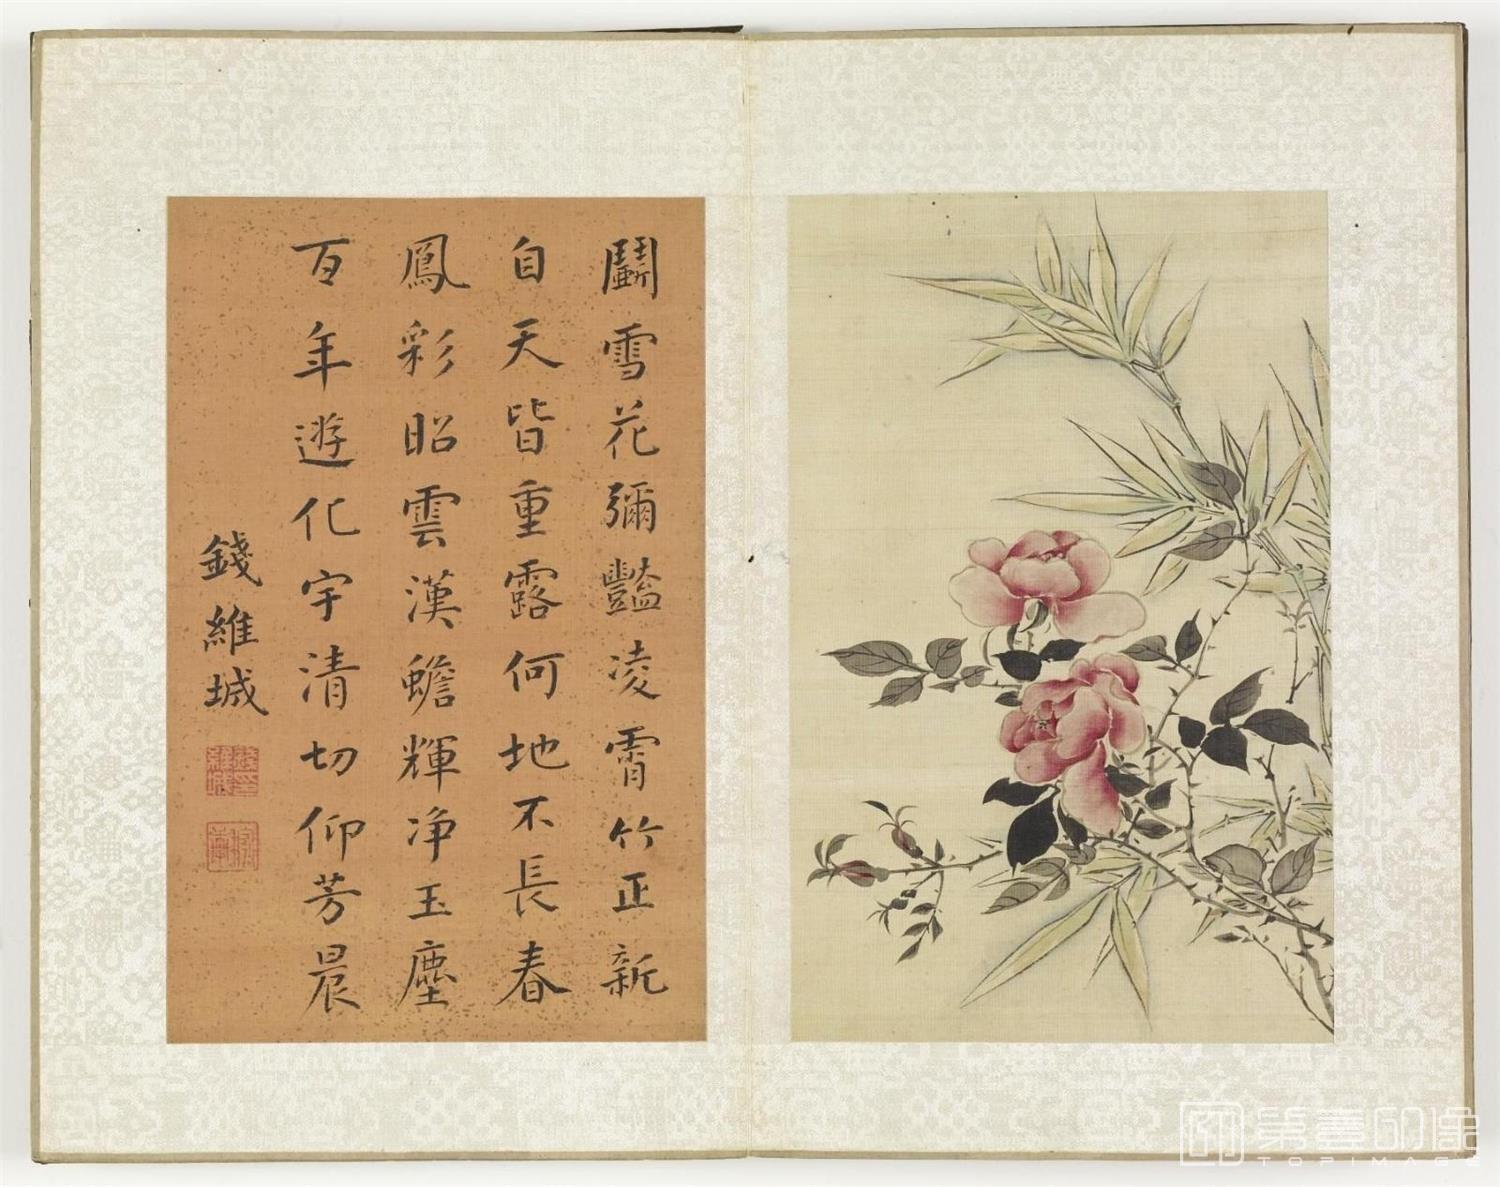 鬬雪花彌豔凌霄竹正新
自天皆重露何地不長春
鳳彩昭雲漢蟾輝净玉塵
百年遊化宇清切仰芳晨
錢維城
第壹印像
TOPIMAGE